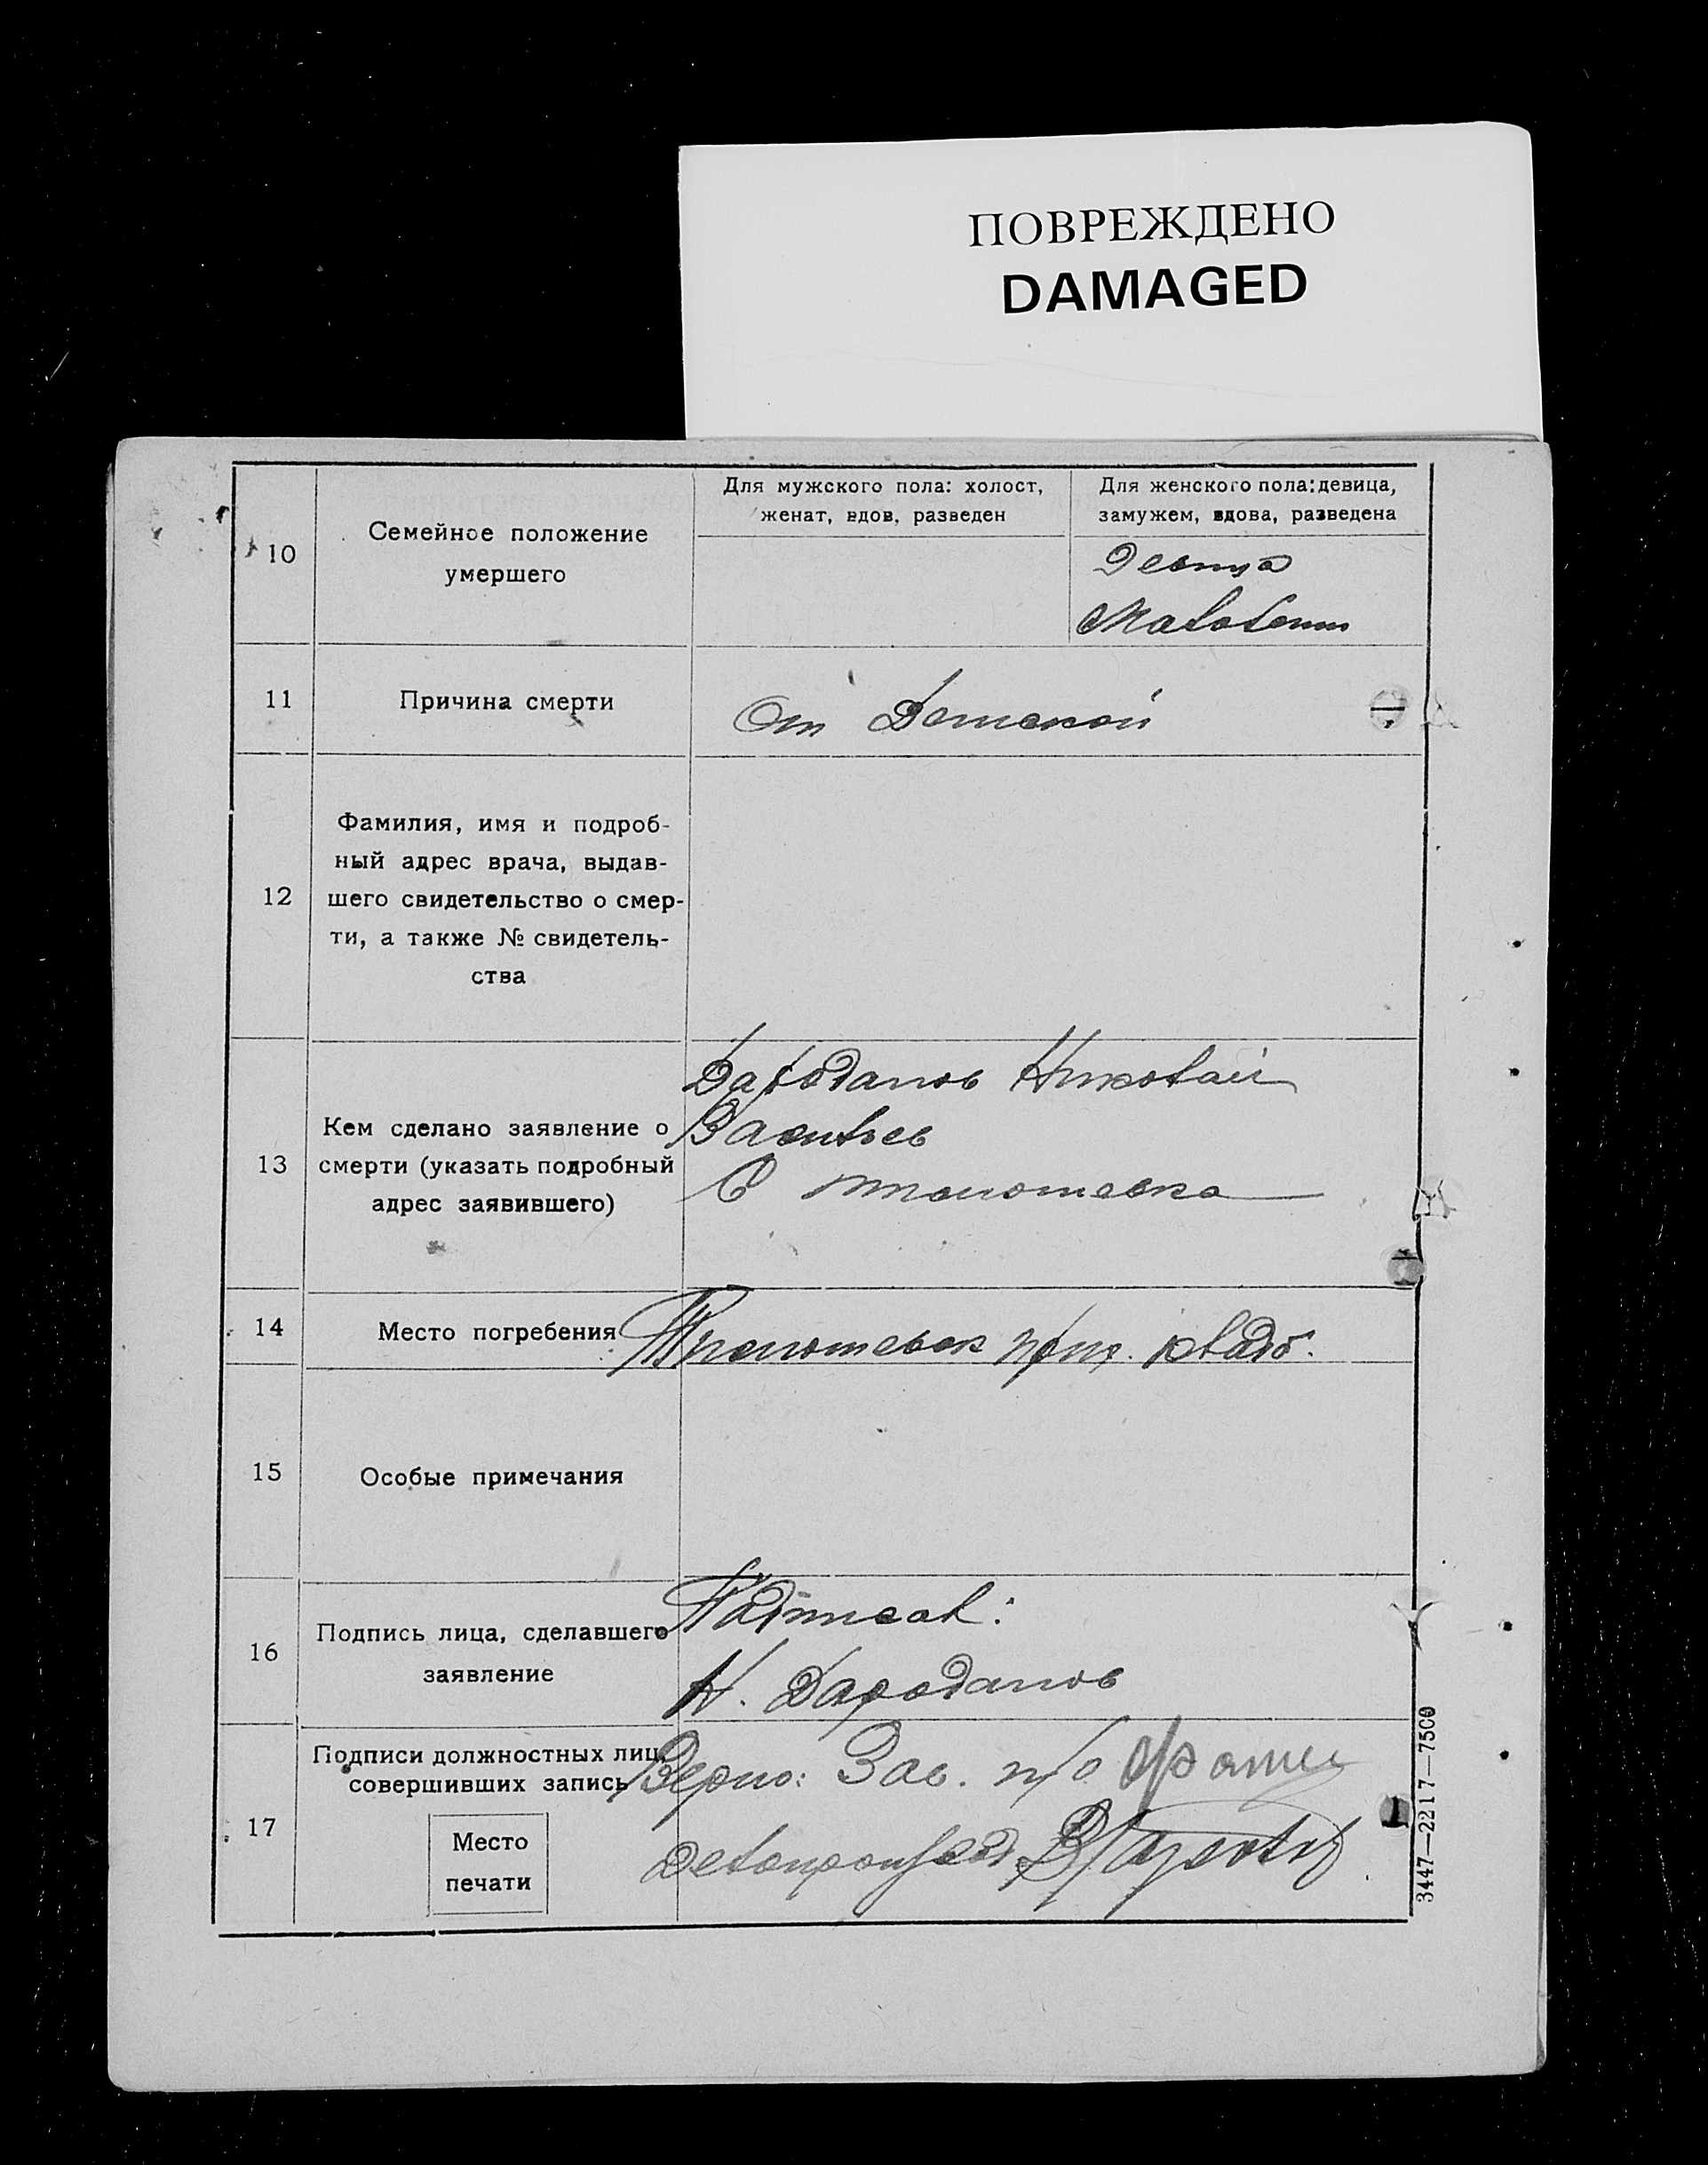 ПОВРЕЖДЕНО
DAMAGED
10
Семейное положение
умершего
Для мужского пола: холост,
женат, вдов, разведен
Для женского пола: девица,
замужем, вдова, разведена
Девица
11
Причина смерти
От Детской
12
Фамилия, имя и подроб-
ный адрес врача, выдав-
шего свидетельство о смер-
ти, а также № свидетель-
ства
13
Кем сделано заявление о
смерти (указать подробный
адрес заявившего)
Дароданов Николай
Васильев
С
14
Место погребения
кладб.
15
Особые примечания
16
Подпись лица, сделавшего
заявление
Подписал:
Н. Дароданов
17
Подписи должностных лиц,
совершивших запись
Место
печати
Верно: Зав. п/о
Делопроизвод.
3447—2217—7500